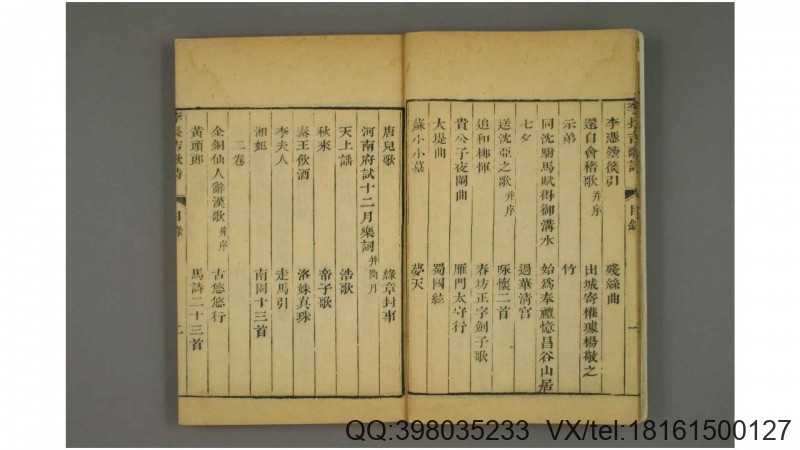 李長吉歌詩 目錄 一
李憑箜篌引 殘絲曲
還自會稽歌并序 出城寄權璩楊敬之
示弟 竹
同沈駙馬賦得御溝水 始為奉禮憶昌谷山居
七夕 過華清宮
送沈亞之歌并序 咏懷二首
追和柳惲 春坊正字劍子歌
貴公子夜闌曲 雁門太守行
大堤曲 蜀國絃
蘇小小墓 夢天
唐兒歌 綠章封事
河南府試十二月樂詞并閏月
天上謠 浩歌
秋來 帝子歌
秦王飲酒 洛姝真珠
李夫人 走馬引
湘妃 南園十三首
二卷
金銅仙人辭漢歌并序 古悠悠行
黃頭郎 馬詩二十三首
李長吉歌詩 目錄 二
QQ:398035233 VX/tel:18161500127